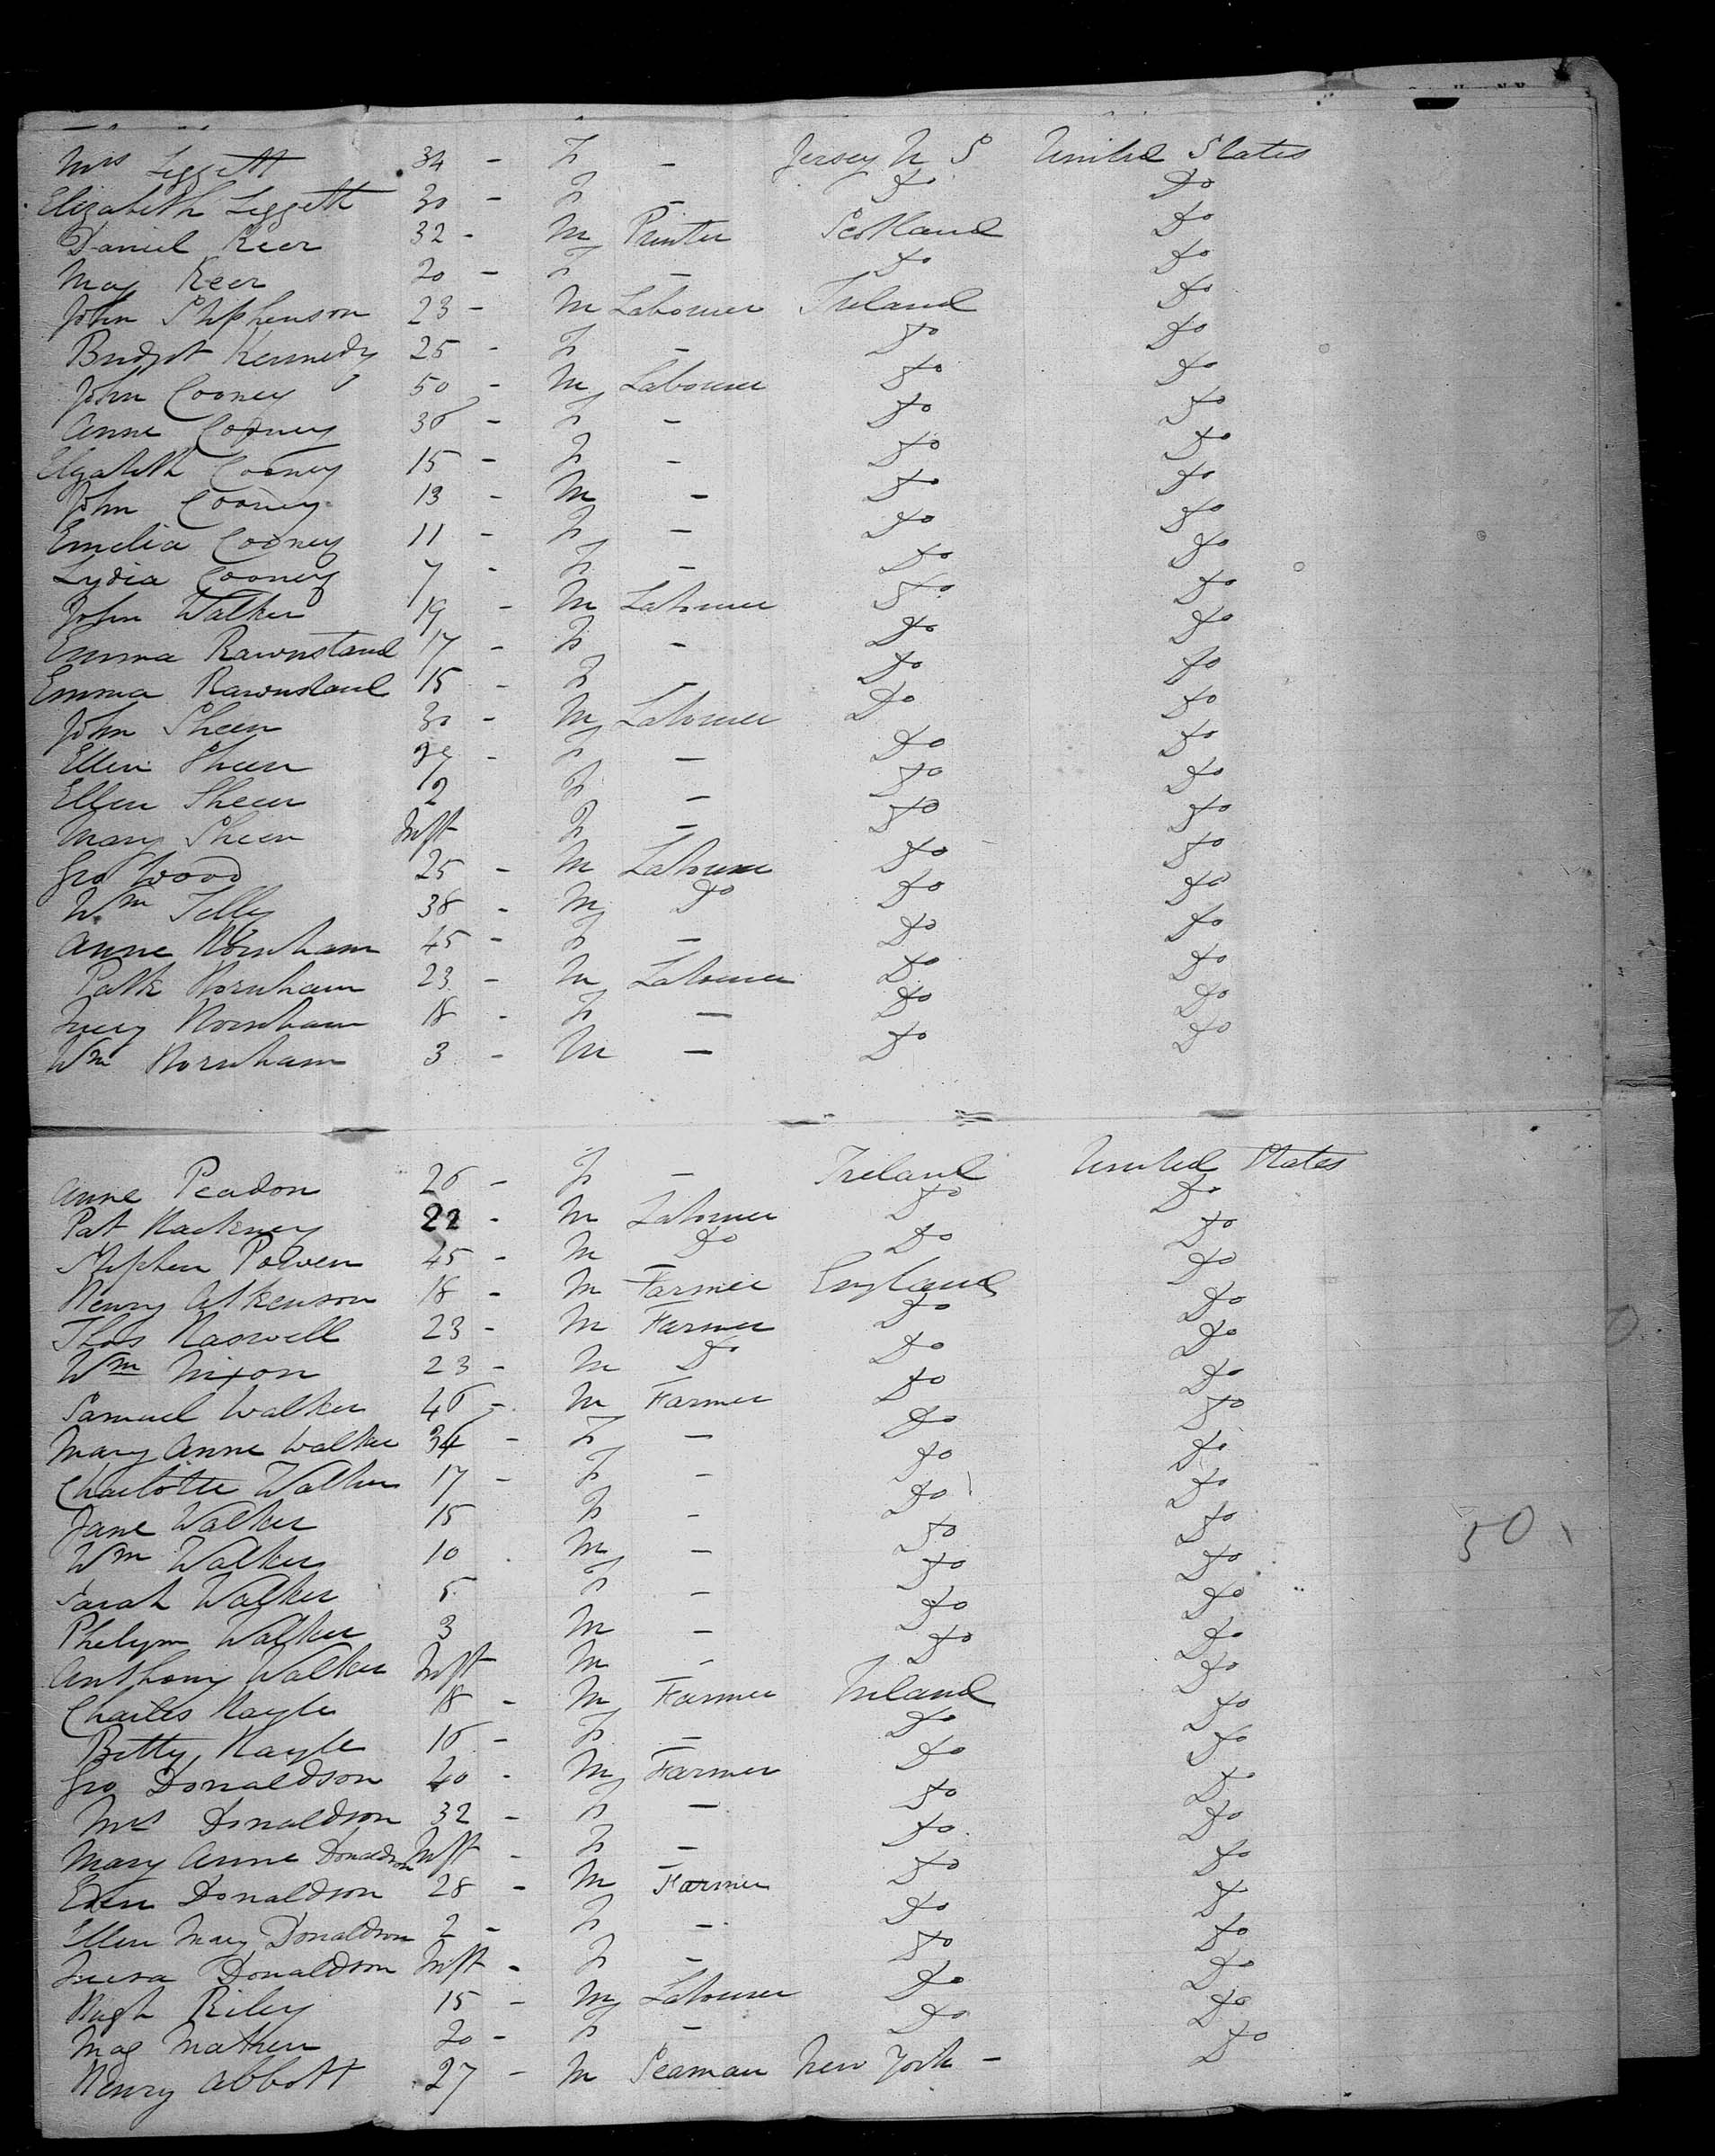 Mrs Leggett 34 - F - Jersey U S United States
Elizabeth Leggett 30 - F - Do Do
Daniel Keer 32 - M Printer Scotland Do
May Keer 20 - F - Do Do
John Stephenson 23 - M Labourer Ireland Do
Bridget Kennedy 25 - F - Do Do
John Cooney 50 - M Labourer Do Do
Anne Cooney 36 - F - Do Do
Elizabeth Cooney 15 - F - Do Do
John Cooney 13 - M - Do Do
Emelia Cooney 11 - F - Do Do
Lydia Cooney 7 - F - Do Do
John Walker 19 - M Labourer Do Do
Emma Rawnstand 17 - F - Do Do
Emma Rawnstand 15 - F - Do Do
John Sheen 30 - M Labourer Do Do
Ellen Sheen - F - Do Do
Ellen Sheen 2 F - Do Do
Mary Sheen Inft F - Do Do
Geo Wood 25 - M Labourer Do Do
Wm 38 - M Do Do Do
Anne Hornham 45 - F - Do Do
Patk Hornham 23 - M Labourer Do Do
Lucy Hornham 18 - F - Do Do
Wm Hornham 3 - M - Do Do
Anne Peadon 26 - F - Ireland United States
Pat Hackney 22 - M Labourer Do Do
Stephen Power 45 - M Do Do Do
Henry Atkenson 18 - M Farmer England Do
Thos Haswell 23 - M Farmer Do Do
Wm Nixon 23 - M Do Do Do
Samuel Walker 46 - M Farmer Do Do
Mary Anne Walker 36 - F - Do Do
Charlotte Walker 17 - F - Do Do
Jane Walker 15 F - Do Do
Wm Walker 10 M - Do Do
Sarah Walker 5 F - Do Do
Phelym Walker 3 M - Do Do
Anthony Walker Inft M - Do Do
Charles Nayle 18 - M Farmer Ireland Do
Betty Nayle 16 - F - Do Do
Geo Donaldson 40 - M Farmer Do Do
Mrs Donaldson 32 - F - Do Do
Mary Anne Donaldson Inft - F - Do Do
Donaldson 28 - M Farmer Do Do
Ellen Mary Donaldson 2 - F - Do Do
Donaldson Inft - F - Do Do
Hugh Riley 15 - M Labourer Do Do
Mag Mathew 20 - F - Do Do
Henry Abbott 27 - M Seaman New York - Do
50